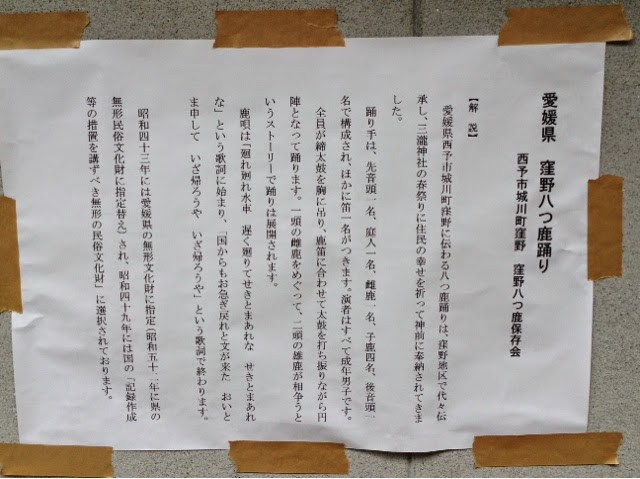 愛媛県　窪野八つ鹿踊り
西予市城川町窪野　窪野八つ鹿保存会
【解　説】
愛媛県西予市城川町窪野に伝わる八つ鹿踊りは、窪野地区で代々伝
承し、三瀧神社の春祭りに住民の幸せを祈って神前に奉納されてきま
した。
踊り手は、先音頭一名、庭人一名、雌鹿一名、子鹿四名、後音頭一
名で構成され、ほかに笛一名がつきます。演者はすべて成年男子です。
全員が締太鼓を胸に吊り、鹿笛に合わせて太鼓を打ち振りながら円
陣となって踊ります。一頭の雌鹿をめぐって、二頭の雄鹿が相争うと
いうストーリーで踊りは展開されます。
鹿唄は「廻れ廻れ水車　遅く廻りてせきとまあれな　せきとまあれ
な」という歌詞に始まり、「国からもお急ぎ戻れと文が来た　おいと
ま申して　いざ帰ろうや　いざ帰ろうや」という歌詞で終わります。
昭和四十三年には愛媛県の無形文化財に指定（昭和五十二年に県の
無形民俗文化財に指定替え）され、昭和四十九年には国の「記録作成
等の措置を講ずべき無形の民俗文化財」に選択されております。